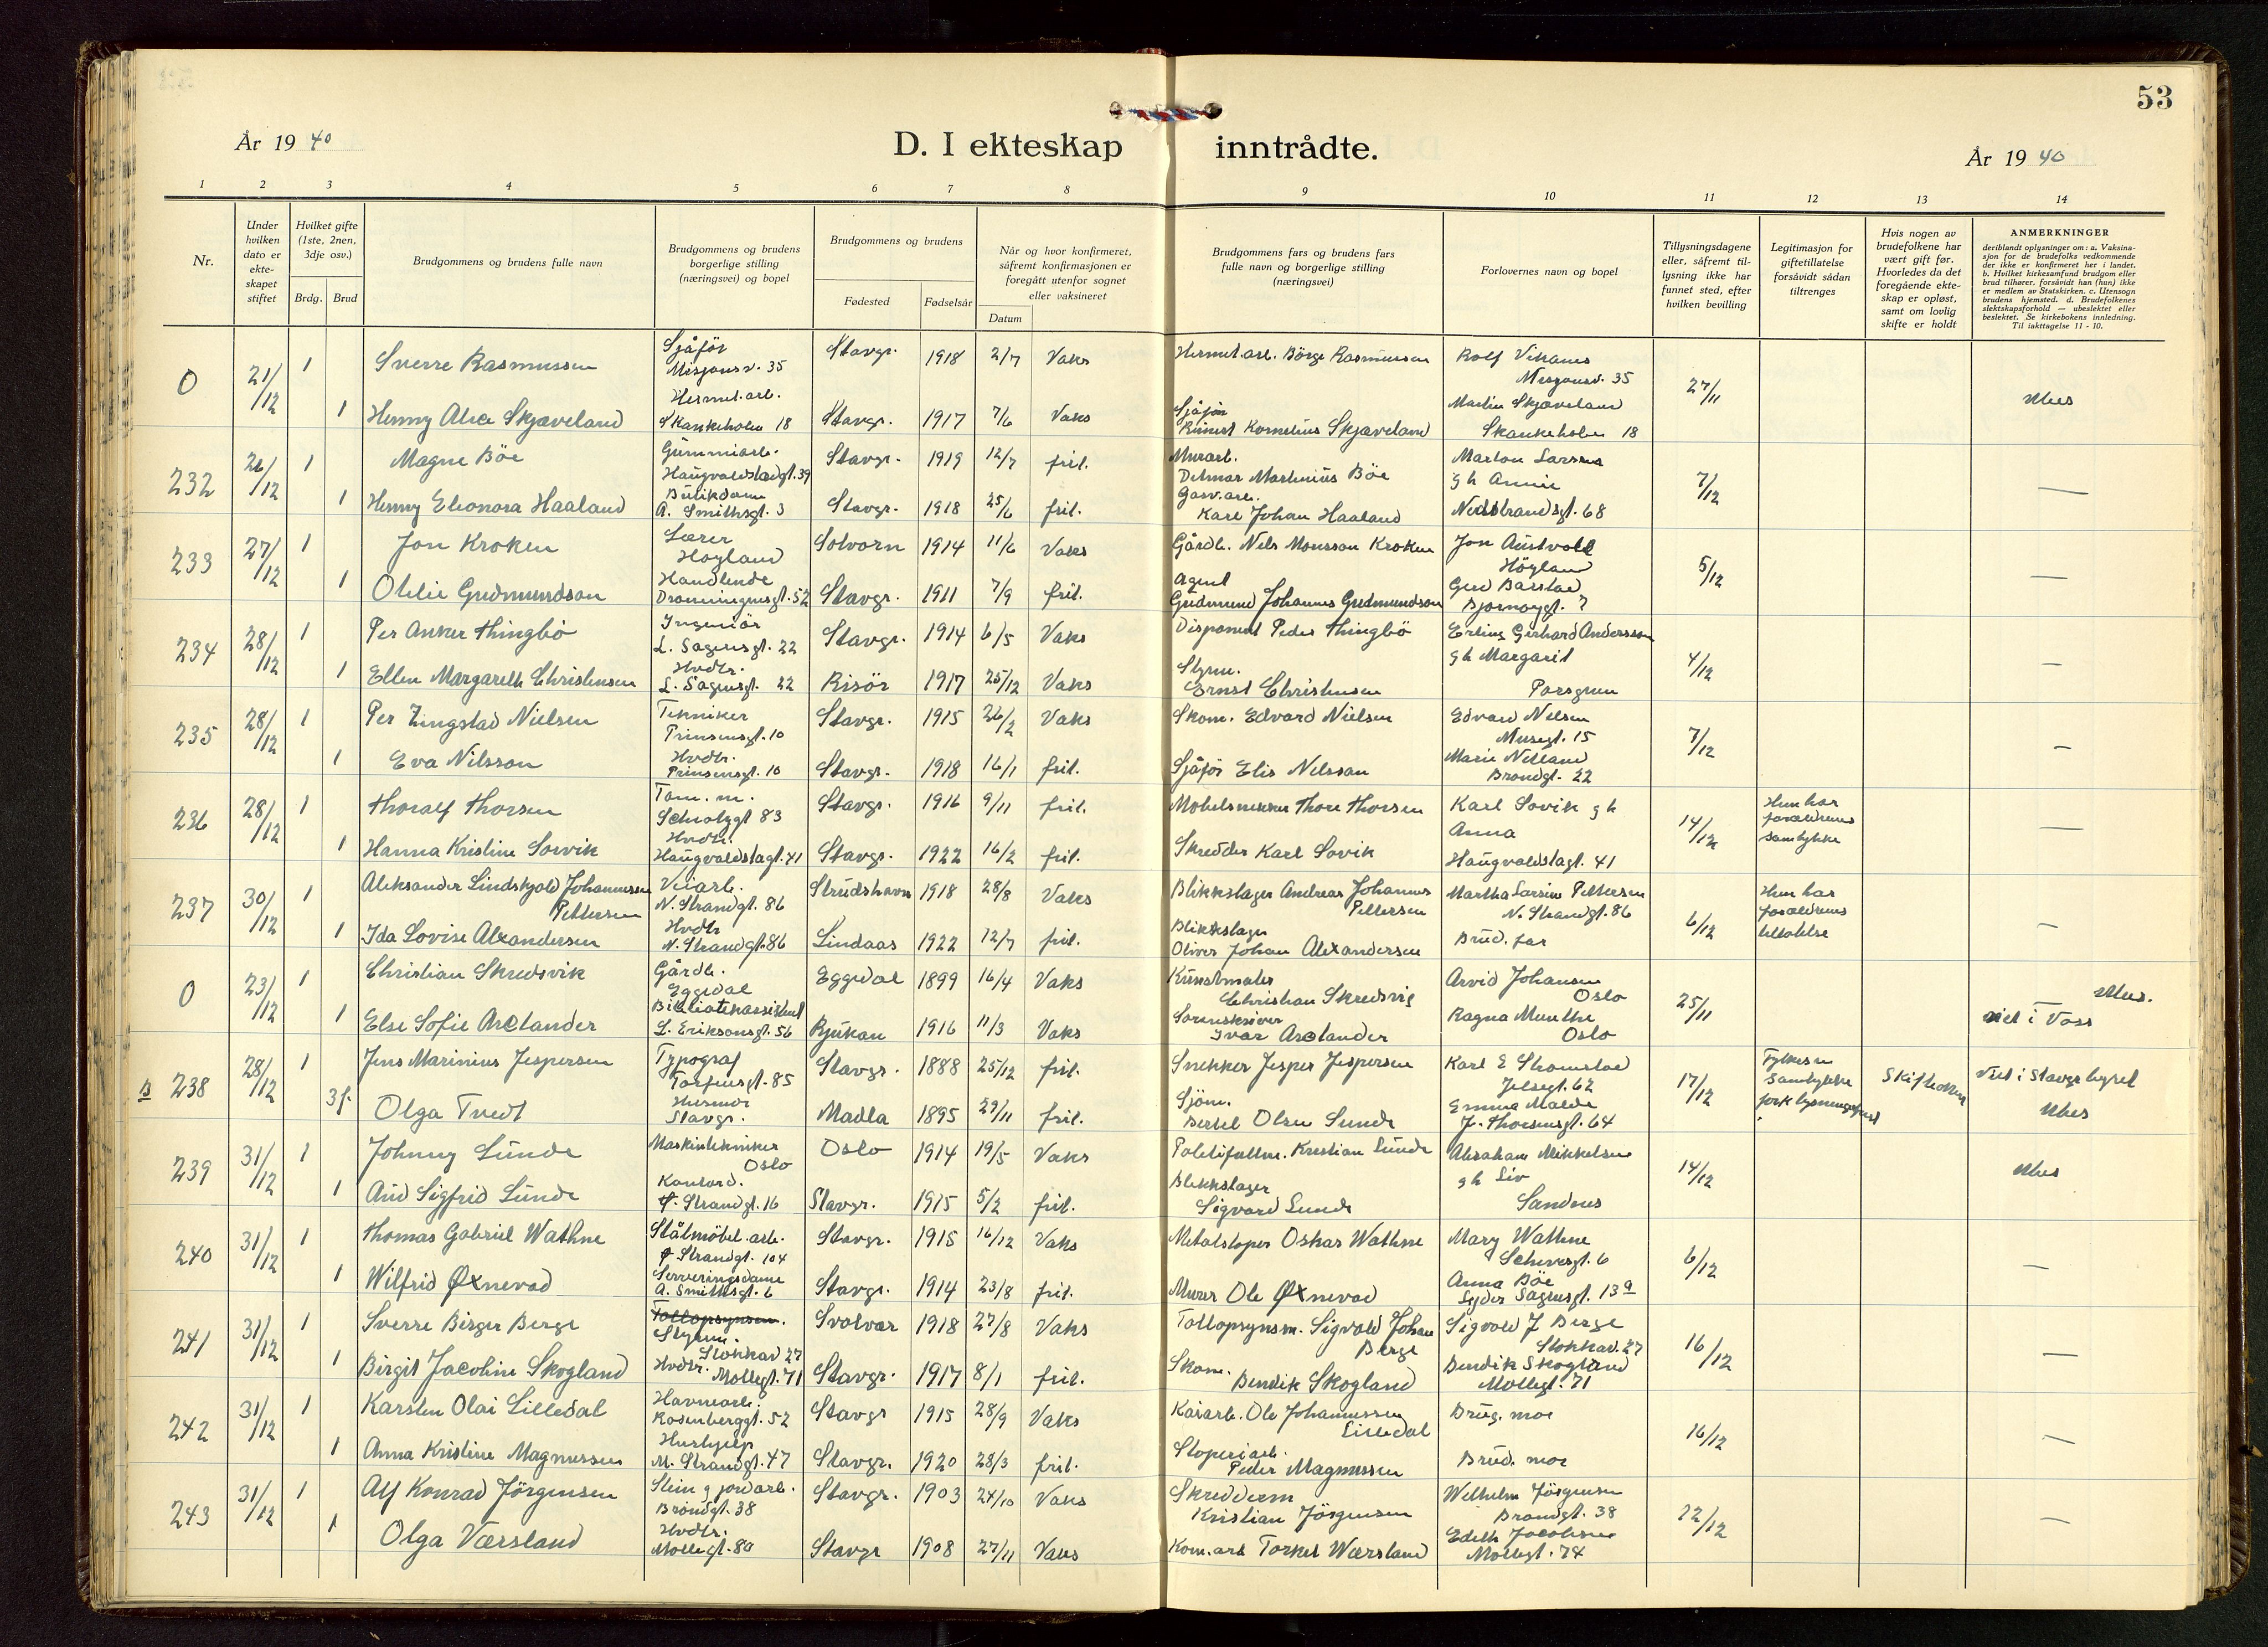 53
År 19 40
D. I ekteskap inntrådte.
År 19 40
1 2 3 4 5 6 7 8 9 10 11 12 13 14
Nr.
Under hvilken dato er ekte-skapet stiftet
Hvilket gifte (1ste, 2nen, 3dje osv.)
Brdg. Brud
Brudgommens og brudens fulle navn
Brudgommens og brudens borgerlige stilling (næringsvei) og bopel
Brudgommens og brudens
Fødested
Fødselsår
Når og hvor konfirmeret, såfremt konfirmasjonen er foregått utenfor sognet eller vaksineret
Datum
Brudgommens fars og brudens fars fulle navn og borgerlige stilling (næringsvei)
Forlovernes navn og bopel
Tillysningsdagene eller, såfremt til-lysning ikke har funnet sted, efter hvilken bevilling
Legitimasjon for giftetillatelse forsåvidt sådan tiltrenges
Hvis nogen av brudefolkene har vært gift før. Hvorledes da det foregående ekte-skap er opløst, samt om lovlig skifte er holdt
ANMERKNINGER
deriblandt oplysninger om: a. Vaksina-sjon for de brudefolks vedkommende der ikke er konfirmeret her i landet. b. Hvilket kirkesamfund brudgom eller brud tilhører, forsåvidt han (hun) ikke er medlem av Statskirken. c. Utensogn brudens hjemsted. d. Brudefolkenes slektskapsforhold — ubeslektet eller beslektet. Se kirkebokens innledning. Til iakttagelse 11 - 10.
0 21/12 1 Sverre Rasmussen Sjåfør Misjonsv. 35 Stavgr. 1918 2/7 Vaks Hermet.arb. Börge Rasmussen Rolf Vikanes Misjonsv. 35 27/11
1 Henny Alice Skjæveland Hermet.arb. Skankeholen 18 Stavgr. 1917 7/6 Vaks Sjåför Kornelius Skjæveland Martin Skjæveland Skankeholen 18
232 26/12 1 Magne Böe Gummiarb. Haugvaldstadgt. 39 Stavgr. 1919 12/7 fril. Murarb. Ditmar Martinius Böe Marton Larsen g h Annie 7/12 —
1 Henny Eleonora Haaland Butikdame A. Smithsgt. 3 Stavgr. 1918 25/6 fril. Gasv.arb. Karl Johan Haaland Nedstrandsgt. 68
233 27/12 1 Jon Kroken Lærer Högland Solvorn 1914 11/6 Vaks Gårdb. Nils Monsson Kroken Jon Austvoll Högland 5/12 —
1 Otelie Gudmundson Handlende Dronningensgt. 52 Stavgr. 1911 7/9 fril. Agent Gudmund Johannes Gudmundson Gerd Barstad Bjornöygt. 7
234 28/12 1 Per Anker Thingbö Ingeniör L. Sagensgt. 22 Stavgr. 1914 6/5 Vaks Disponent Peder Thingbö Erling Gerhard Andersson g h Margarit 4/12 —
1 Ellen Margareth Christensen Hvdtr. L. Sagensgt. 22 Risör 1917 25/12 Vaks Styrm. Ernst Christensen Porsgrun
235 28/12 1 Per Zingstad Nielsen Tekniker Prinsensgt. 10 Stavgr. 1915 26/2 Vaks Skom. Edvard Nielsen Edvard Nilsen Musegt. 15 7/12 —
1 Eva Nilsson Hvdtr. Prinsensgt. 10 Stavgr. 1918 16/1 fril. Sjåför Elis Nilsson Marie Nilland Brandgt. 22
236 28/12 1 Thoralf Thorsen Tom. m. Schiötzgt 83 Stavgr. 1916 9/11 fril. Møbelsnekker Thore Thorsen Karl Sovik g h Anna 14/12 Hun har forældrenes samtykke —
1 Hanna Kristine Sovik Hvdtr. Haugvaldstagt. 41 Stavgr. 1922 16/2 fril. Skredder Karl Sovik Haugvaldstagt. 41
237 30/12 1 Aleksander Lindskjold Johannessen Pettersen Veiarb. N. Strandgt. 86 Strudshavn 1918 28/8 Vaks Blikkslager Andreas Johannes Pettersen Martha Larsine Pettersen N. Strandgt. 86 6/12 Hun har forældrenes tillatelse —
1 Ida Lovise Alexandersen Hvdtr N. Strandgt. 86 Lindaas 1922 12/7 fril. Blikkslager Oliver Johan Alexandersen Brud. far
0 23/12 1 Christian Skredsvik Gårdb. Eggedal Eggedal 1899 16/4 Vaks Kunstmaler Christian Skredsvig Arvid Johansen Oslo 25/11
1 Else Sofie Arctander Bibliotekassistent L. Eriksonsgt. 56 Rjukan 1916 11/3 Vaks Sorenskriver Ivar Arctander Ragna Munthe Oslo viet i Voss
B 238 28/12 1 Jens Marinius Jespersen Typograf Torfeusgt. 85 Stavgr. 1888 25/12 fril. Snekker Jesper Jespersen Karl E Stromstad Jelsegt. 62 17/12 Fylkesm samtykke Skifte Viet i Stavgr byret
3 f. Olga Tvedt Husmor Stavgr. Madla 1895 29/11 fril. Sjöm. Bertel Olsen Sunde Emma Malde J. Thorsensgt. 64
239 31/12 1 Johnny Lunde Maskintekniker Oslo Oslo 1914 19/5 Vaks Politifullm. Kristian Lunde Abraham Mikkelsen g h Liv 14/12
1 Aud Sigfrid Lunde Kontord. Ö. Strandgt. 16 Stavgr. 1915 5/2 fril. Blikkslager Sigvard Lunde Sandnes
240 31/12 1 Thomas Gabriel Wathne Stålmöbel.arb. Ö Strandgt. 104 Stavgr. 1915 16/12 Vaks Metalstoper Oskar Wathne Mary Wathne 6/12 —
1 Wilfrid Øxnevad Serveringsdame A. Smithsgt. 6 Stavgr. 1914 23/8 fril. Murer Ole Øxnevad Anna Böe Lyder Sagensgt. 13a
241 31/12 1 Sverre Birger Berge Tollopsynsm. Styrm. Stokkav 27 Svolvær 1918 27/8 Vaks Tollopsynsm. Sigvald Johan Berge Sigvald J Berge Stokkav. 27 16/12 —
1 Birgit Jacobine Skogland Hvdtr. Möllegt. 71 Stavgr. 1917 8/1 fril. Skom. Bendik Skogland Bendik Skogland Möllegt. 71
242 31/12 1 Karsten Olai Lilledal Havnearb. Rosenberggt. 52 Stavgr 1915 28/9 Vaks Kaiarb. Ole Johannessen Lilledal Brug. mor 16/12 —
1 Anna Kristine Magnussen Hushjelp N. Strandgt. 47 Stavgr. 1920 28/3 fril. Stoperiarb. Peder Magnussen Brud. mor
243 31/12 1 Alf Konrad Jörgensen Stein g jordarb. Bröndgt. 38 Stavgr. 1903 24/10 Vaks Skredderm Kristian Jörgensen Wilhelm Jörgensen Brandgt. 38 22/12 —
1 OlgaVærsland Hvdtr. Möllegt. 80 Stavgr 1908 27/11 Vaks Kom.arb Torkel Wærsland Edith Jacobsen Möllegt. 74